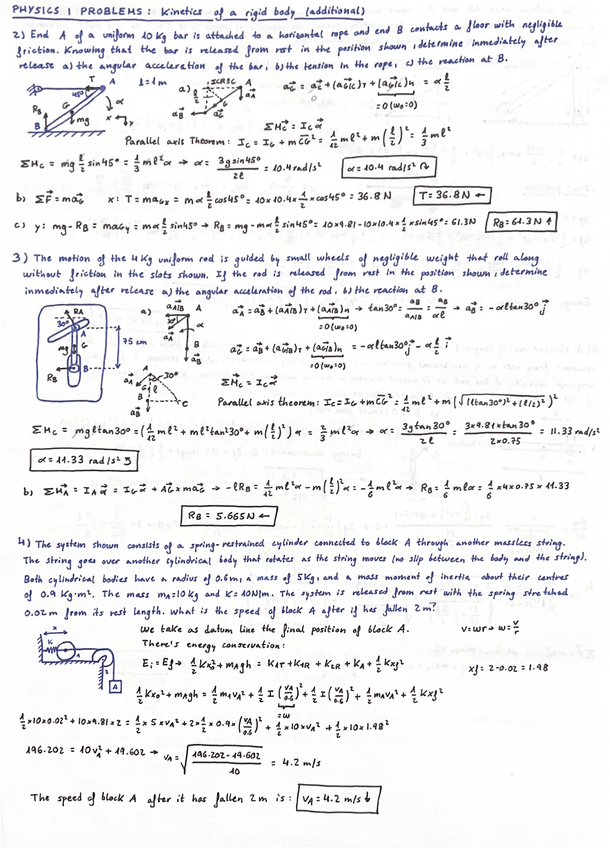 PHYSICS 1 PROBLEMS: Kinetics of a rigid body (additional)
2) End A of a uniform 10 Kg bar is attached to a horizontal rope and end B contacts a floor with negligible
friction. Knowing that the bar is released from rest in the position shown, determine inmediately after
release a) the angular acceleration of the bar, b) the tension in the rope, c) the reaction at B.
T A l=1m a) ICRSC A
45° G α RB mg B x y
a⃗G = a⃗C + (a⃗G/C)T + (a⃗G/C)n = α l/2
=0 (ω0=0)
ΣM⃗C = IC α⃗
Parallel axis Theorem: IC = IG + mCG² = 1/12 ml² + m(l/2)² = 1/3 ml²
ΣMC = mg l/2 sin45° = 1/3 ml²α → α = 3g sin45°/2l = 10.4 rad/s² α = 10.4 rad/s² ↷
b) ΣF⃗ = ma⃗G x: T = maGx = mα l/2 cos45° = 10×10.4×1/2×cos45° = 36.8 N T = 36.8 N ←
c) y: mg - RB = maGy = mα l/2 sin45° → RB = mg - mα l/2 sin45° = 10×9.81 - 10×10.4×1/2×sin45° = 61.3N RB = 61.3 N ↑
3) The motion of the 4 Kg uniform rod is guided by small wheels of negligible weight that roll along
without friction in the slots shown. If the rod is released from rest in the position shown, determine
inmediately after release a) the angular acceleration of the rod, b) the reaction at B.
RA 30° A G mg RB B 75 cm
a) a⃗A = a⃗B + (a⃗A/B)T + (a⃗A/B)n → tan30° = aB/aA/B = aB/αl → a⃗B = -αl tan30° j⃗
=0 (ω0=0)
a⃗G = a⃗B + (a⃗G/B)T + (a⃗G/B)n = -αl tan30° j⃗ - α l/2 i⃗
=0 (ω0=0)
A 30° B l C
ΣM⃗C = IC α⃗
Parallel axis theorem: IC = IG + mCG² = 1/12 ml² + m(√(l tan30°)² + (l/2)²)²
ΣMC = mgl tan30° = (1/12 ml² + ml² tan²30° + m(l/2)²) α = 2/3 ml²α → α = 3g tan30°/2l = 3×9.81×tan30°/2×0.75 = 11.33 rad/s²
α = 11.33 rad/s² ↺
b) ΣM⃗A = IA α⃗ = IG α⃗ + AG⃗ × ma⃗G → -lRB = 1/12 ml²α - m(l/2)²α = -1/6 ml²α → RB = 1/6 mlα = 1/6 ×4×0.75×11.33
RB = 5.665 N ←
4) The system shown consists of a spring-restrained cylinder connected to block A through another massless string.
The string goes over another cylindrical body that rotates as the string moves (no slip between the body and the string).
Both cylindrical bodies have a radius of 0.6m, a mass of 5Kg, and a mass moment of inertia about their centres
of 0.9 Kg·m². The mass mA=10 Kg and K=10N/m. The system is released from rest with the spring stretched
0.02 m from its rest length. What is the speed of block A after if has fallen 2 m?
We take as datum line the final position of block A. v=ωr → ω = v/r
There's energy conservation:
Ei = Ef → 1/2 Kx0² + mAgh = K1T + K1R + K2R + KA + 1/2 Kxf² xf = 2-0.02 = 1.98
x K A
1/2 Kx0² + mAgh = 1/2 m1vA² + 1/2 I (vA/0.6)² + 1/2 I (vA/0.6)² + 1/2 mAvA² + 1/2 Kxf²
=ω
1/2 ×10×0.02² + 10×9.81×2 = 1/2 × 5 × vA² + 2×1/2 × 0.9 × (vA/0.6)² + 1/2 ×10×vA² + 1/2 ×10×1.98²
196.202 = 10vA² + 19.602 → vA = √(196.202-19.602/10) = 4.2 m/s
The speed of block A after it has fallen 2 m is: vA = 4.2 m/s ↓